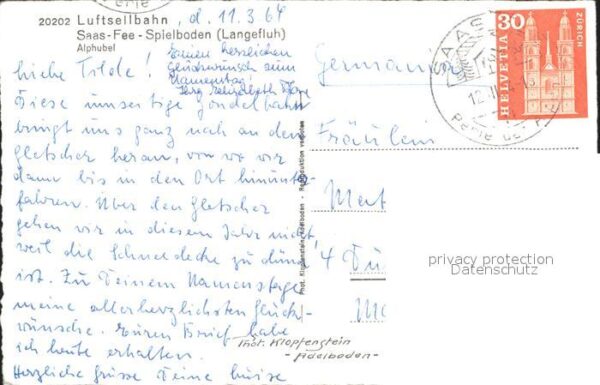 20202 Luftseilbahn , d. 11.3.64
Saas-Fee - Spielboden (Langefluh)
Alphubel
Einen herzlichen
Glückwunsch zum
Namenstag!
Liebe Tilde!
Diese unsertige Gondelbahn
bringt uns ganz nach an den
Gletscher heran, von wo wir
dann bis in den Ort hinunter-
fahren. Über den Gletscher
gehen wir in diesem Jahr nicht,
weil die Schneedecke zu dünn
ist. Zu Deinem Namenstage
meine allerherzlichsten Glück-
wünsche. Euren Brief habe
ich heute erhalten.
Herzliche Grüsse Deine Luise
Phot. Klopfenstein, Adelboden - Reproduktion verboten
Germania
Fräulein
Mat
4 Dü
Phot. Klopfenstein
- Adelboden -
30
HELVETIA
ZÜRICH
SAAS
privacy protection
Datenschutz